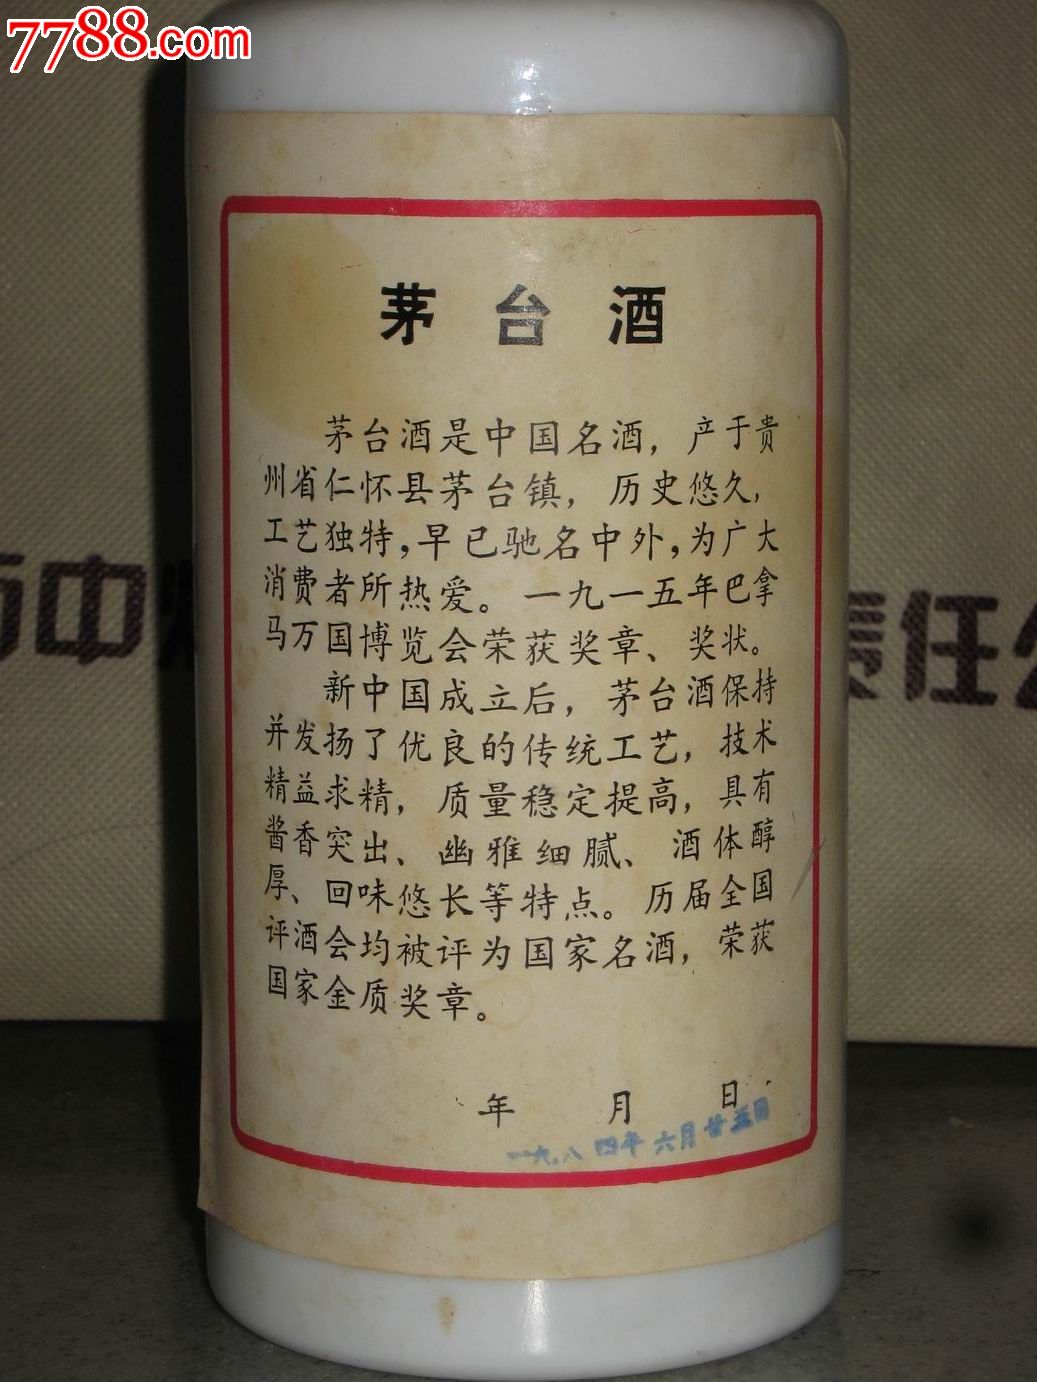 7788.com
茅台酒
茅台酒是中国名酒，产于贵
州省仁怀县茅台镇，历史悠久，
工艺独特，早已驰名中外，为广大
消费者所热爱。一九一五年巴拿
马万国博览会荣获奖章、奖状。
新中国成立后，茅台酒保持
并发扬了优良的传统工艺，技术
精益求精，质量稳定提高，具有
酱香突出、幽雅细腻、酒体醇
厚、回味悠长等特点。历届全国
评酒会均被评为国家名酒，荣获
国家金质奖章。
年 月 日
一九八四年六月廿五日
中
责任公